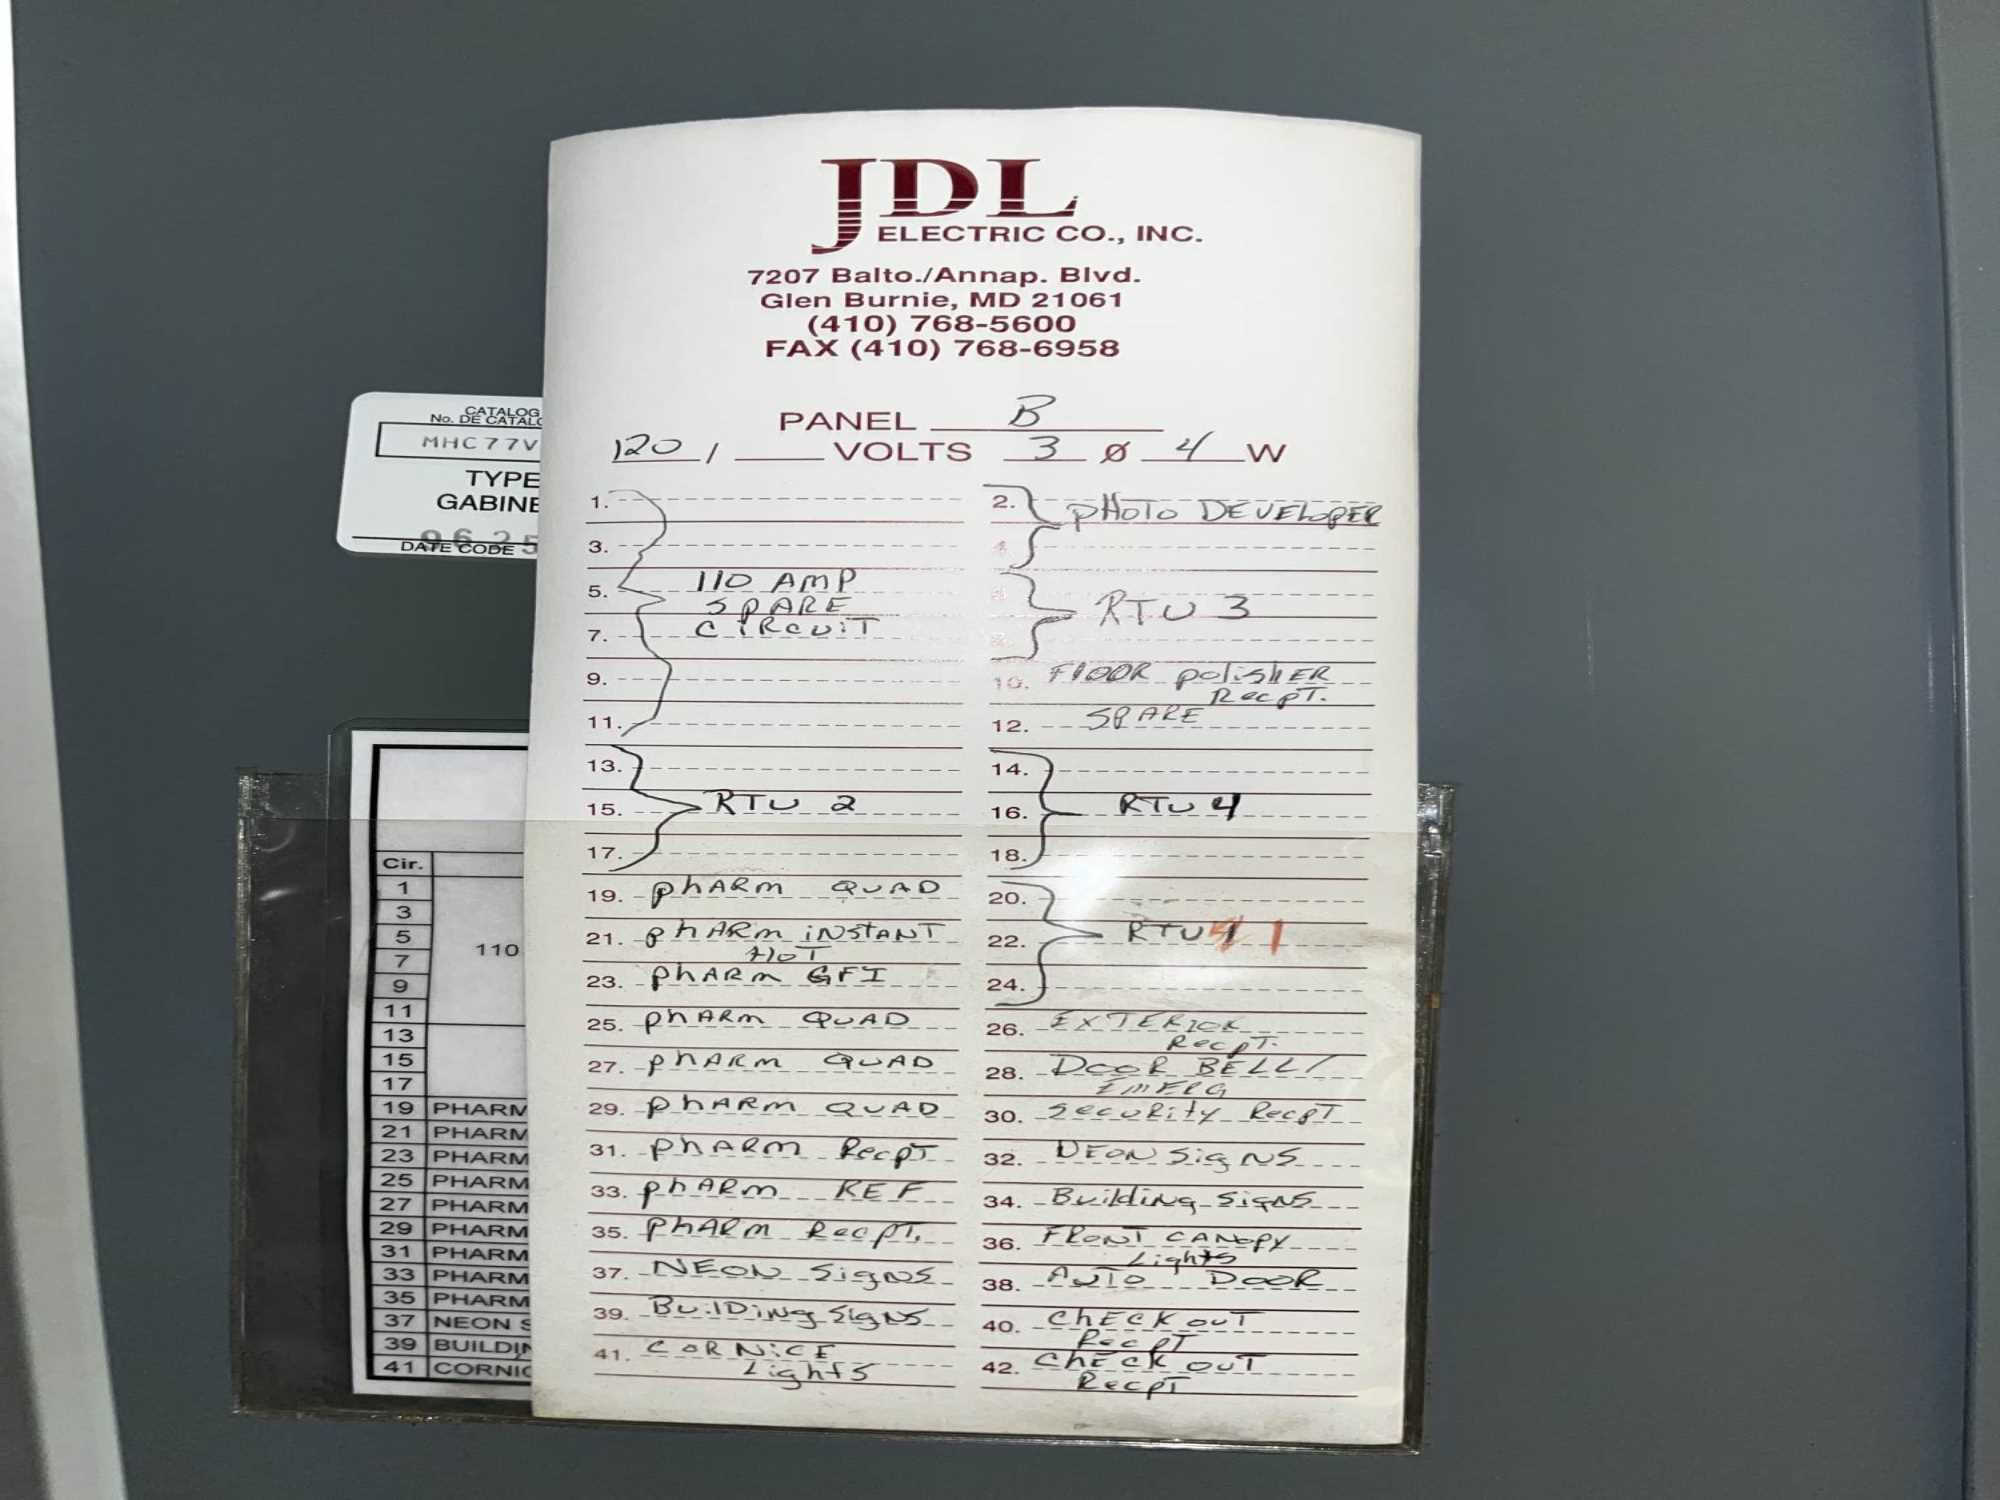 JDL
ELECTRIC CO., INC.
7207 Balto./Annap. Blvd.
Glen Burnie, MD 21061
(410) 768-5600
FAX (410) 768-6958
PANEL B
120 / VOLTS 3 Ø 4 W
1.
3.
5. 110 AMP
SPARE
7. CIRCUIT
9.
11.
13.
15. RTU 2
17.
19. PhARM QUAD
21. PhARM INSTANT
HOT
23. PhARM GFI
25. PhARM QUAD
27. PhARM QUAD
29. PhARM QUAD
31. PhARM RecpT
33. PhARM REF
35. PhARM RecpT.
37. NEON SigNS
39. BuilDiNg SigNS
41. CORNiCE
Lights
2. PHOTO DEVELOPER
RTU 3
10. FlOOR poliSHER
RecpT.
12. SPARE
14.
16. RTU 4
18.
20.
22. RTU 1
24.
26. EXTERIOR
RecpT.
28. DOOR BELL/
EMERG
30. SecuRity RecpT
32. NEON SigNS
34. Building SigNS
36. FRONT CANOPY
Lights
38. AUTO DOOR
40. ChECK OUT
RecpT
42. ChECK OUT
RecpT
CATALOG
No. DE CATALO
MHC77V
TYPE
GABINE
96 25
DATE CODE
Cir.
1
3
5
7
9
11
110
13
15
17
19 PHARM
21 PHARM
23 PHARM
25 PHARM
27 PHARM
29 PHARM
31 PHARM
33 PHARM
35 PHARM
37 NEON S
39 BUILDIN
41 CORNIC